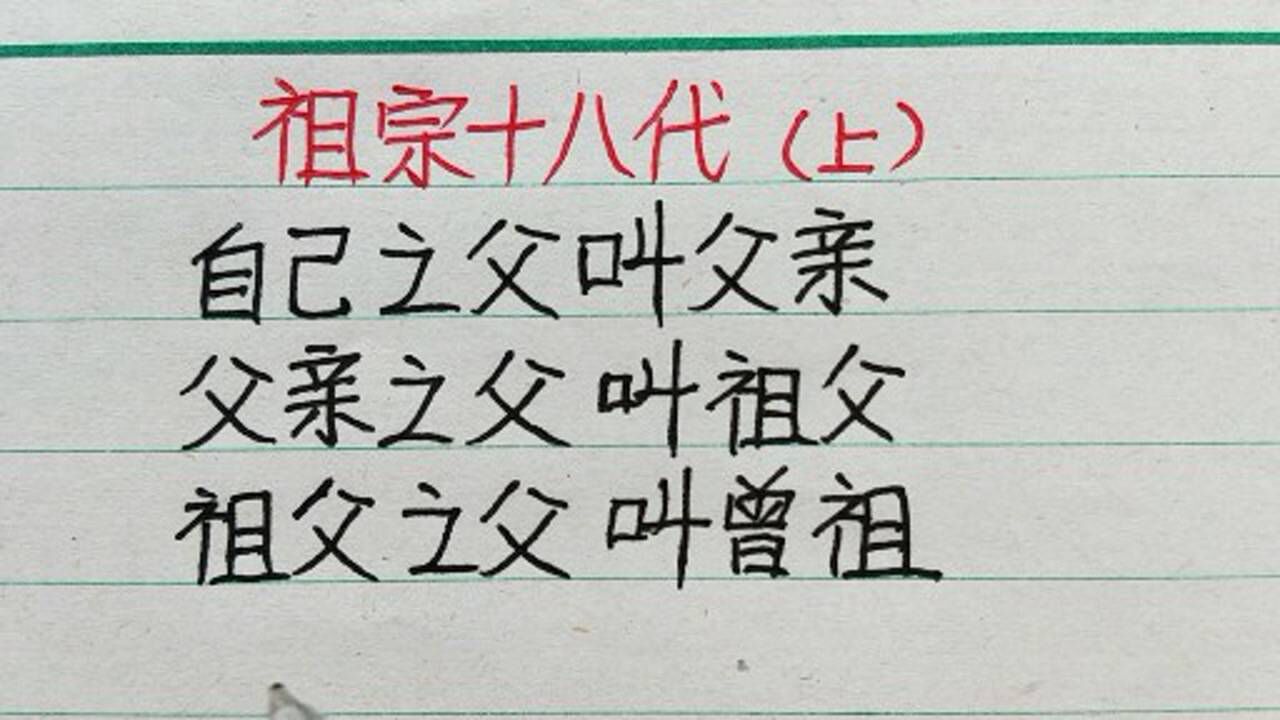 祖宗十八代（上）
自己之父叫父亲
父亲之父叫祖父
祖父之父叫曾祖